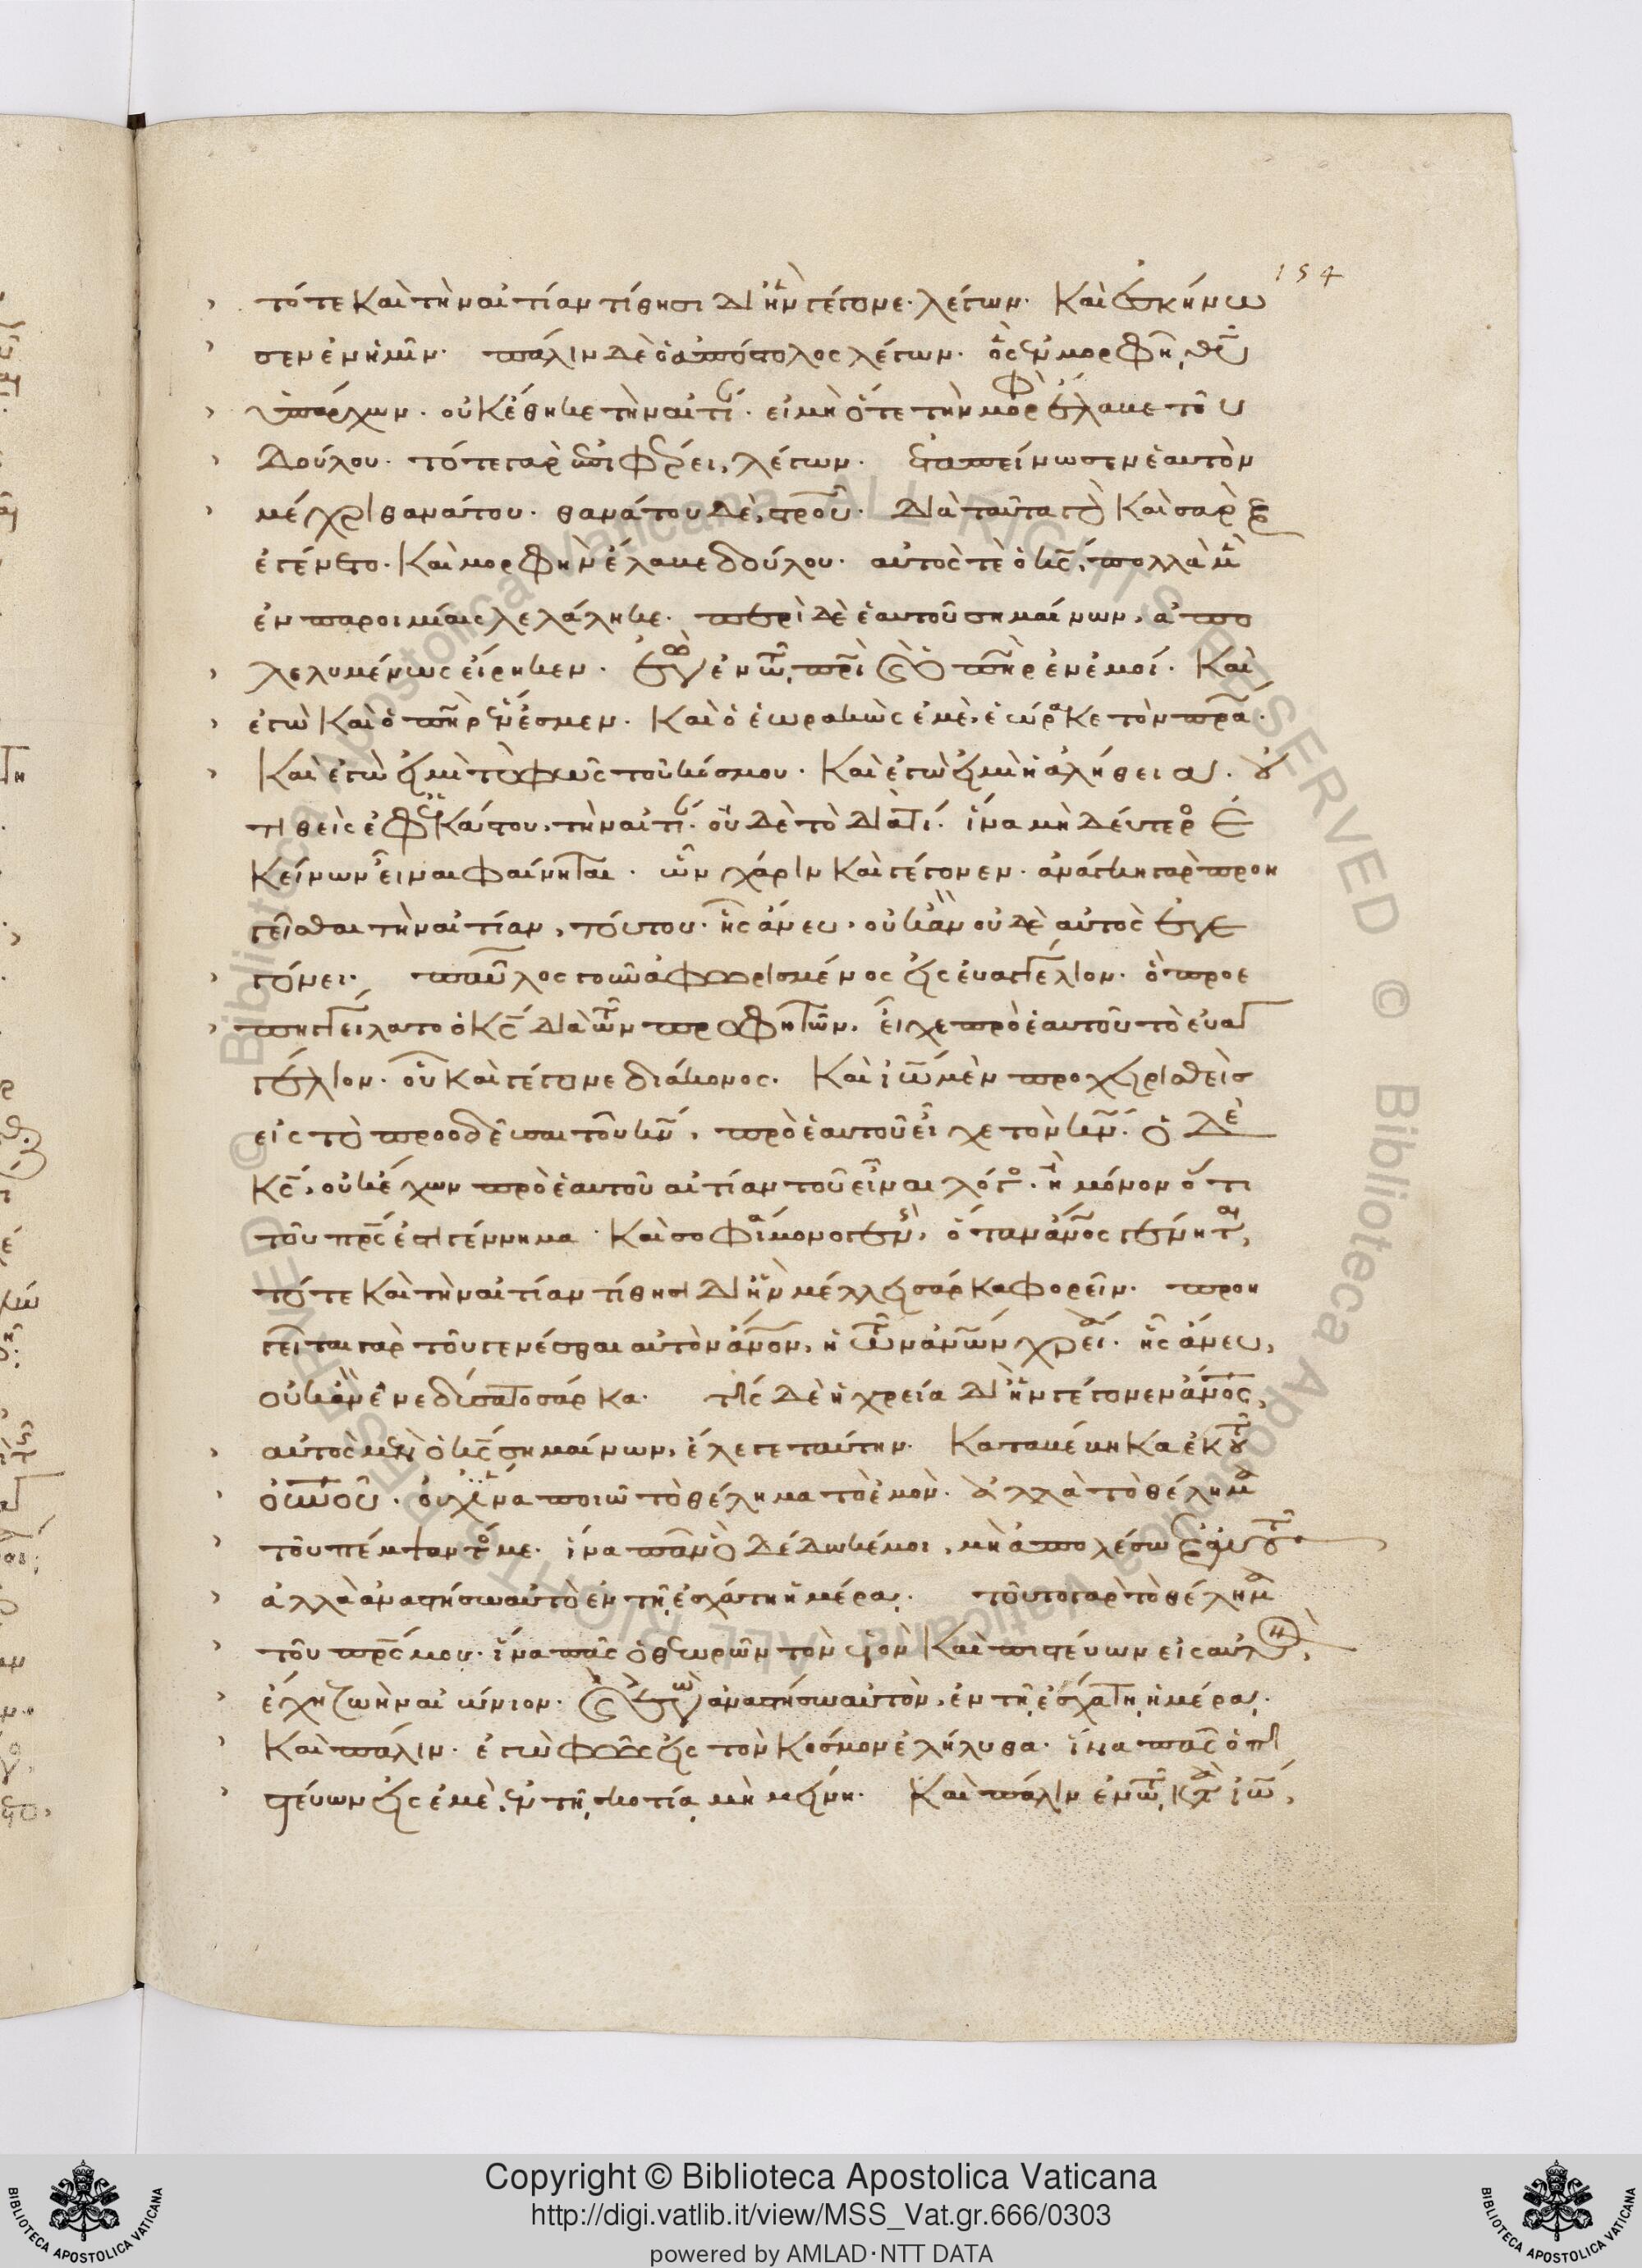 154
τότε καὶ τὴν αἰτίαν τίθησι δι' ἣν γέγονε· λέγων· καὶ ἐσκήνω
σεν ἐν ἡμῖν· πάλιν δὲ ὁ ἀπόστολος λέγων· ὃς ἐν μορφῇ θυ
ὑπάρχων· οὐκ ἔθηκε τὴν αἰτί· εἰ μὴ ὅτε τὴν μορφὴν ἔλαβε τοῦ
δούλου· τότε γὰρ ἐπιφέρει, λέγων· ἐταπείνωσεν ἑαυτὸν
μέχρι θανάτου· θανάτου δὲ, στροῦ· διὰ ταῦτα γὸ καὶ σὰρξ
ἐγένετο· καὶ μορφὴν ἔλαβε δούλου· αὐτός τε ὁ κς, πολλὰ μὲν
ἐν παροιμίαις λελάληκε· περὶ δὲ ἑαυτοῦ σημαίνων, ἀπο
λελυμένως εἴρηκεν· ἐγὼ ἐν τῶ πρι καὶ ὁ πηρ ἐν ἐμοί· καὶ
ἐγὼ καὶ ὁ πηρ ἕν ἐσμεν· καὶ ὁ ἑωρακὼς ἐμὲ, ἑώρακε τὸν πρα·
καὶ ἐγὼ εἰμὶ τὸ φῶς τοῦ κόσμου· καὶ ἐγὼ εἰμὶ ἡ ἀλήθεια· οὐ
τιθεὶς ἐφ' ἑκάστου, τὴν αἰτί· οὐδὲ τὸ διατί· ἵνα μὴ δεύτερο ἐ
κείνων εἶναι φαίνηται· ὧν χάριν καὶ γέγονεν· ἀνάγκη γὰρ προη
γεῖσθαι τὴν αἰτίαν, τούτου· ἧς ἄνευ, οὐκ ἂν οὐδὲ αὐτὸς ἐγε
γόνει· παῦλος γοῦν ἀφωρισμένος εἰς εὐαγγέλιον· ὃ προε
πηγγείλατο ὁ κς διὰ τῶν προφητῶν, εἶχε πρὸ ἑαυτοῦ τὸ εὐαγ
γέλιον· οὗ καὶ γέγονε διάκονος· καὶ ἰω μὲν προχειρισθεὶς
εἰς τὸ προοδεῦσαι τοῦ κυ, πρὸ ἑαυτοῦ εἶχε τὸν κν· ὁ δὲ
κς, οὐκ ἔχων πρὸ ἑαυτοῦ αἰτίαν τοῦ εἶναι λόγο· ἢ μόνον ὅτι
τοῦ πρς ἐστι γέννημα καὶ σοφία μονογενὴς, ὅταν ανος γένηται,
τότε καὶ τὴν αἰτίαν τίθησι δι' ἣν μέλλει σάρκα φορεῖν· προη
γεῖται γὰρ τοῦ γενέσθαι αὐτὸν ανον, ἡ τῶν ανων χρεία· ἧς ἄνευ,
οὐκ ἂν ἐνεδύσατο σάρκα· τίς δὲ ἡ χρεία δι' ἣν γέγονεν ανος,
αὐτὸς μὲν ὁ κς σημαίνων, ἔλεγε ταύτην· καταβέβηκα ἐκ τοῦ
ουνου· οὐχ ἵνα ποιῶ τὸ θέλημα τὸ ἐμὸν· ἀλλὰ τὸ θέλημα
τοῦ πέμψαντός με· ἵνα πᾶν ὃ δέδωκέ μοι, μὴ ἀπολέσω ἐξ αὐτοῦ·
ἀλλὰ ἀναστήσω αὐτὸ ἐν τῆ ἐσχάτη ἡμέρα· τοῦτο γὰρ τὸ θέλημα
τοῦ πρς μου· ἵνα πᾶς ὁ θεωρῶν τὸν υἱὸν καὶ πιστεύων εἰς αὐτὸν,
ἔχη ζωὴν αἰώνιον· καὶ ἐγὼ ἀναστήσω αὐτὸν, ἐν τῆ ἐσχάτη ἡμέρα·
καὶ πάλιν· ἐγὼ φῶς εἰς τὸν κόσμον ἐλήλυθα· ἵνα πᾶς ὁ πι
στεύων εἰς ἐμὲ, ἐν τῆ σκοτία μὴ μείνη· καὶ πάλιν ἐν τῶ κατὰ ἰω,
© Biblioteca Apostolica Vaticana ALL RIGHTS RESERVED © Biblioteca Apostolica Vaticana ALL RIGHTS RESERVED
Copyright © Biblioteca Apostolica Vaticana
http://digi.vatlib.it/view/MSS_Vat.gr.666/0303
powered by AMLAD·NTT DATA
BIBLIOTECA APOSTOLICA VATICANA
BIBLIOTECA APOSTOLICA VATICANA